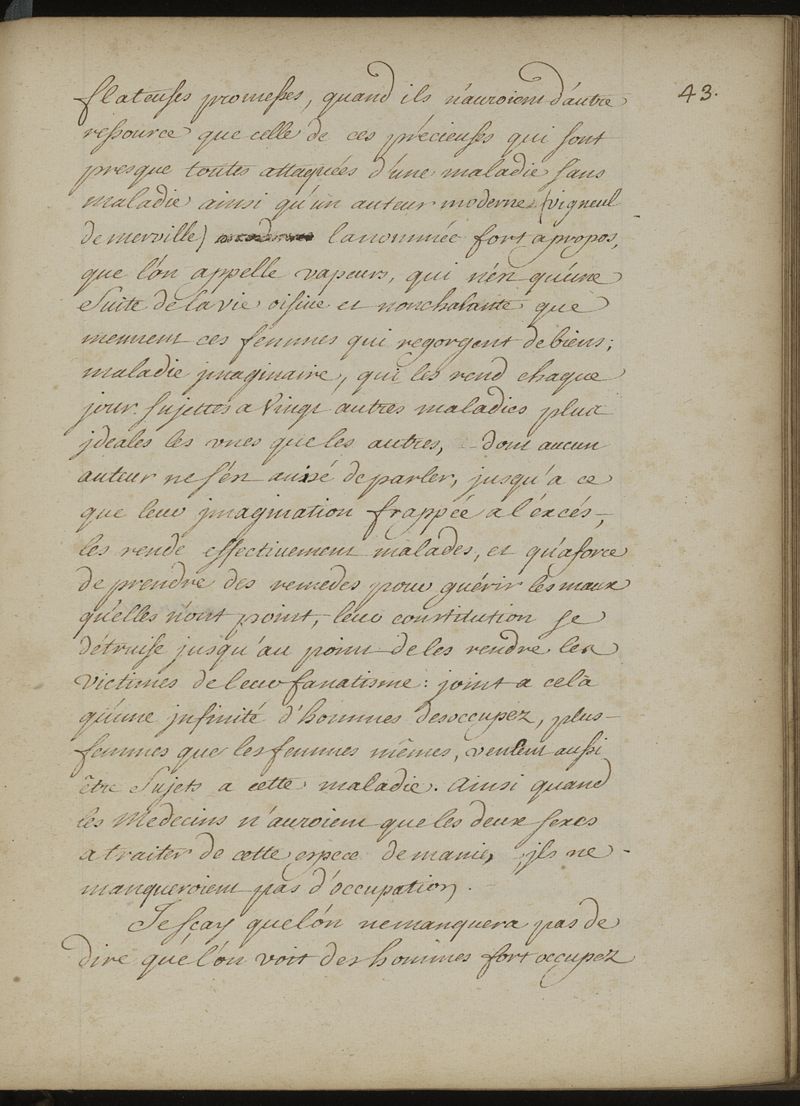 flateuses promesses, quand ils n'auroient d'autre
43.
ressource que celle de ces précieuses qui sont
presque toutes attaquées d'une maladie sans
maladie ainsi qu'un auteur moderne (vigneul
de merville) la nommée fort apropos,
que l'on appelle vapeurs, qui n'én qu'une
Suite de la vie oisive et nonchalante que
mennent ces femmes qui regorgent de biens;
maladie jmaginaire, qui les rend chaque
jour Sujettes a Vingt autres maladies plus
jdeales les vnes que les autres, dont aucun
auteur ne s'én avisé de parler, jusqu'a ce
que leur jmagination frappée a l'éxcés,
les rende effectivement malades, et qu'a force
de prendre des remedes pour guérir les maux
qu'elles n'ont point, leur constitution se
détruise jusqu'au point de les rendre les
Victimes de leur fanatisme: joint a celà
qu'une jnfinité d'hommes desoccupez, plus
femmes que les femmes mêmes, veulent aussi
être Sujets a cette maladie. Ainsi quand
les Medecins n'auroient que les deux sexes
a traiter de cette espece de manie, jls ne
manqueroient pas d'occupation.
Je sçay que l'ón ne manquera pas de
dire que l'ón voit des hommes fort occupez